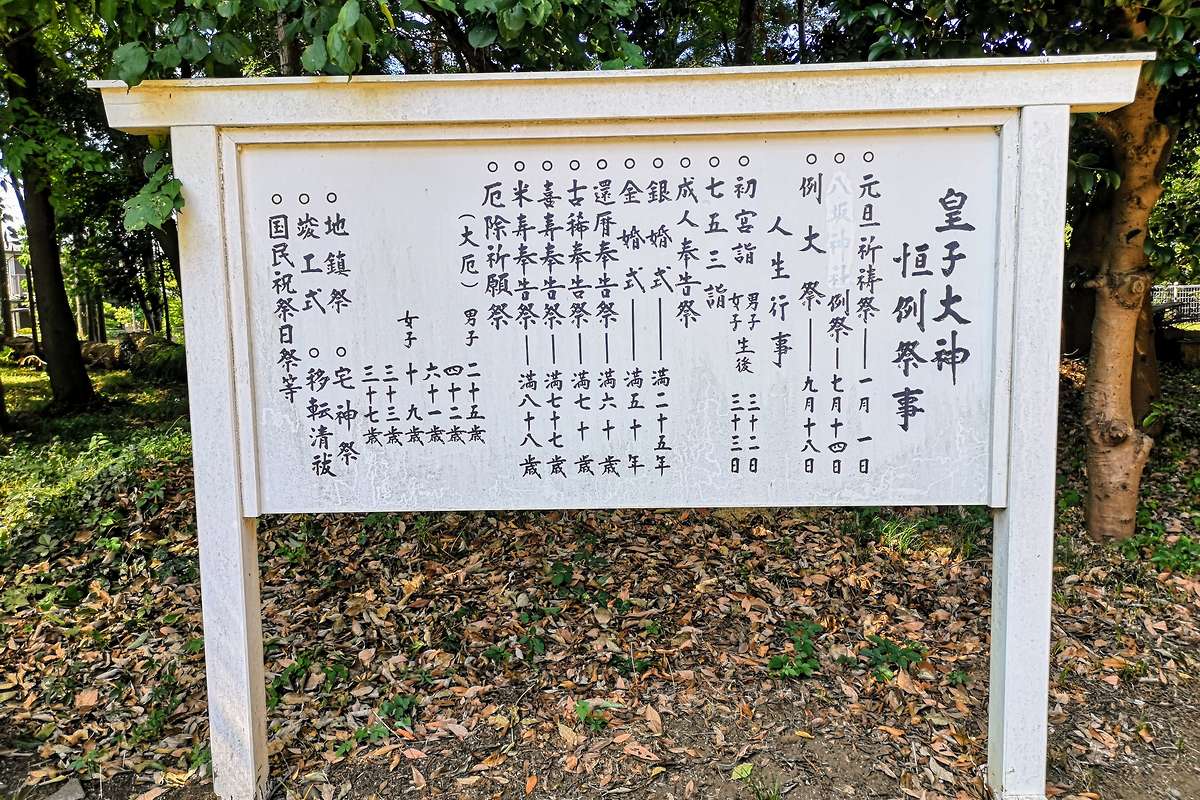 皇子大神
恒例祭事
○元旦祈祷祭━一月一日
○八坂神社例祭━七月十四日
○例大祭━九月十八日
人生行事
○初宮詣 男子生後三十二日
女子三十三日
○七五三詣
○成人奉告祭
○銀婚式━満二十五年
○金婚式━満五十年
○還暦奉告祭━満六十歳
○古稀奉告祭━満七十歳
○喜寿奉告祭━満七十七歳
○米寿奉告祭━満八十八歳
○厄除祈願祭
（大厄）男子 二十五歳
四十二歳
六十一歳
女子 十九歳
三十三歳
三十七歳
○地鎮祭 ○宅神祭
○竣工式 ○移転清祓
○国民祝祭日祭等